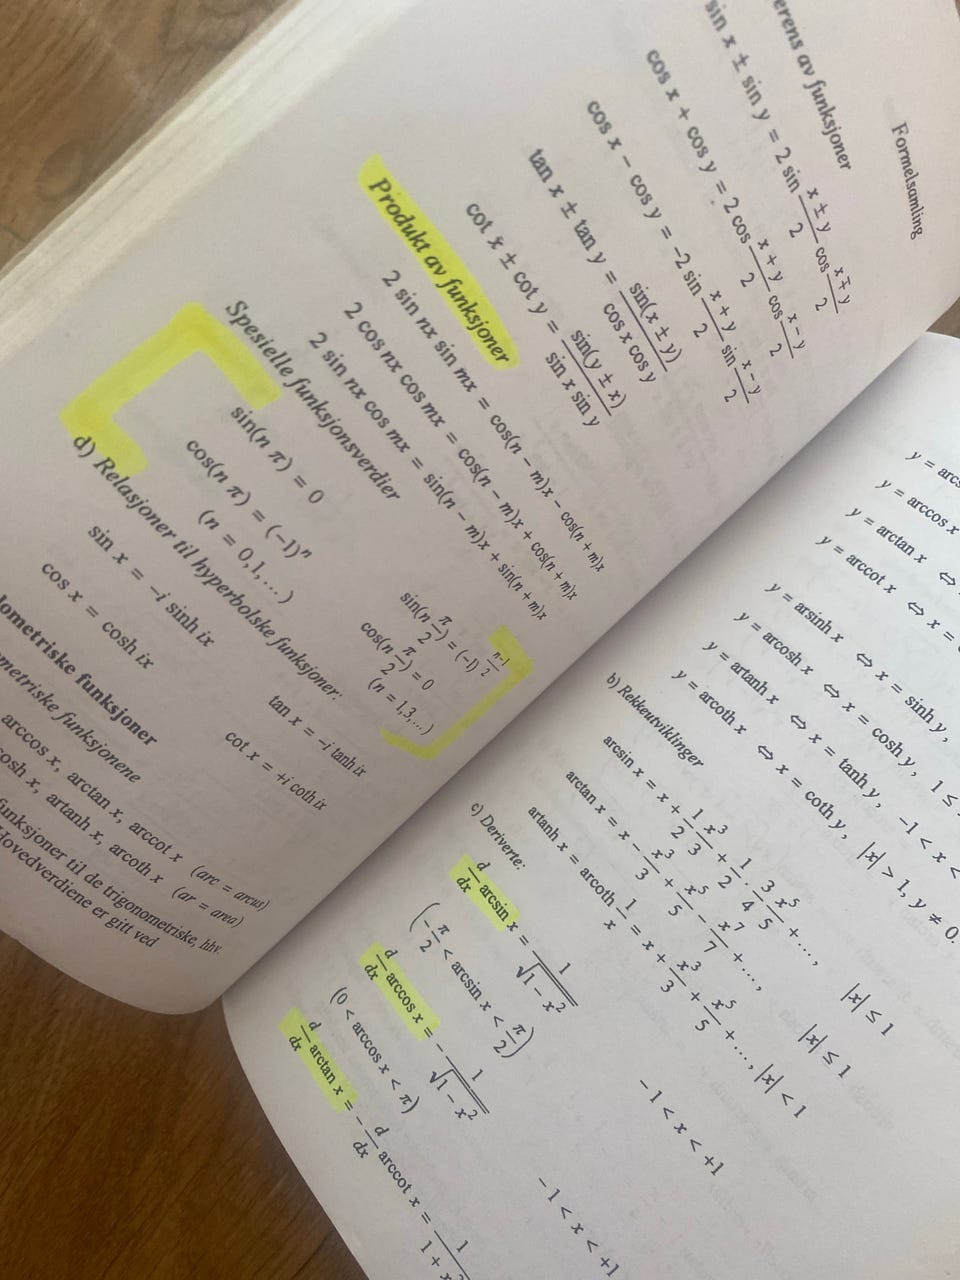 Formelsamling
erens av funksjoner
sin x ± sin y = 2 sin (x ± y)/2 cos (x ∓ y)/2
cos x + cos y = 2 cos (x + y)/2 cos (x − y)/2
cos x − cos y = −2 sin (x + y)/2 sin (x − y)/2
tan x ± tan y = sin(x ± y)/(cos x cos y)
cot x ± cot y = sin(y ± x)/(sin x sin y)
Produkt av funksjoner
2 sin nx sin mx = cos(n − m)x − cos(n + m)x
2 cos nx cos mx = cos(n − m)x + cos(n + m)x
2 sin nx cos mx = sin(n − m)x + sin(n + m)x
Spesielle funksjonsverdier
sin(n π) = 0 sin(n π/2) = (−1)^((n−1)/2)
cos(n π) = (−1)^n cos(n π/2) = 0
(n = 0,1,...) (n = 1,3,...)
d) Relasjoner til hyperbolske funksjoner:
sin x = −i sinh ix tan x = −i tanh ix
cos x = cosh ix cot x = +i coth ix
lometriske funksjoner
ometriske funksjonene
arccos x, arctan x, arccot x (arc = arcus)
cosh x, artanh x, arcoth x (ar = area)
funksjoner til de trigonometriske, hhv.
Hovedverdiene er gitt ved
y = arcs
y = arccos x
y = arctan x ⇔
y = arccot x ⇔ x =
y = arsinh x ⇔ x = sinh y,
y = arcosh x ⇔ x = cosh y, 1 ≤
y = artanh x ⇔ x = tanh y, −1 < x <
y = arcoth x ⇔ x = coth y, |x| > 1, y ≠ 0.
b) Rekkeutviklinger
arcsin x = x + 1/2 x³/3 + 1/2 · 3/4 x⁵/5 + ..., |x| ≤ 1
arctan x = x − x³/3 + x⁵/5 − x⁷/7 + ..., |x| ≤ 1
artanh x = arcoth 1/x = x + x³/3 + x⁵/5 + ..., |x| < 1
c) Deriverte:
d/dx arcsin x = 1/√(1 − x²) −1 < x < +1
(−π/2 < arcsin x < π/2)
d/dx arccos x = − 1/√(1 − x²) −1 < x < +1
(0 < arccos x < π)
d/dx arctan x = − d/dx arccot x = 1/(1 + x²